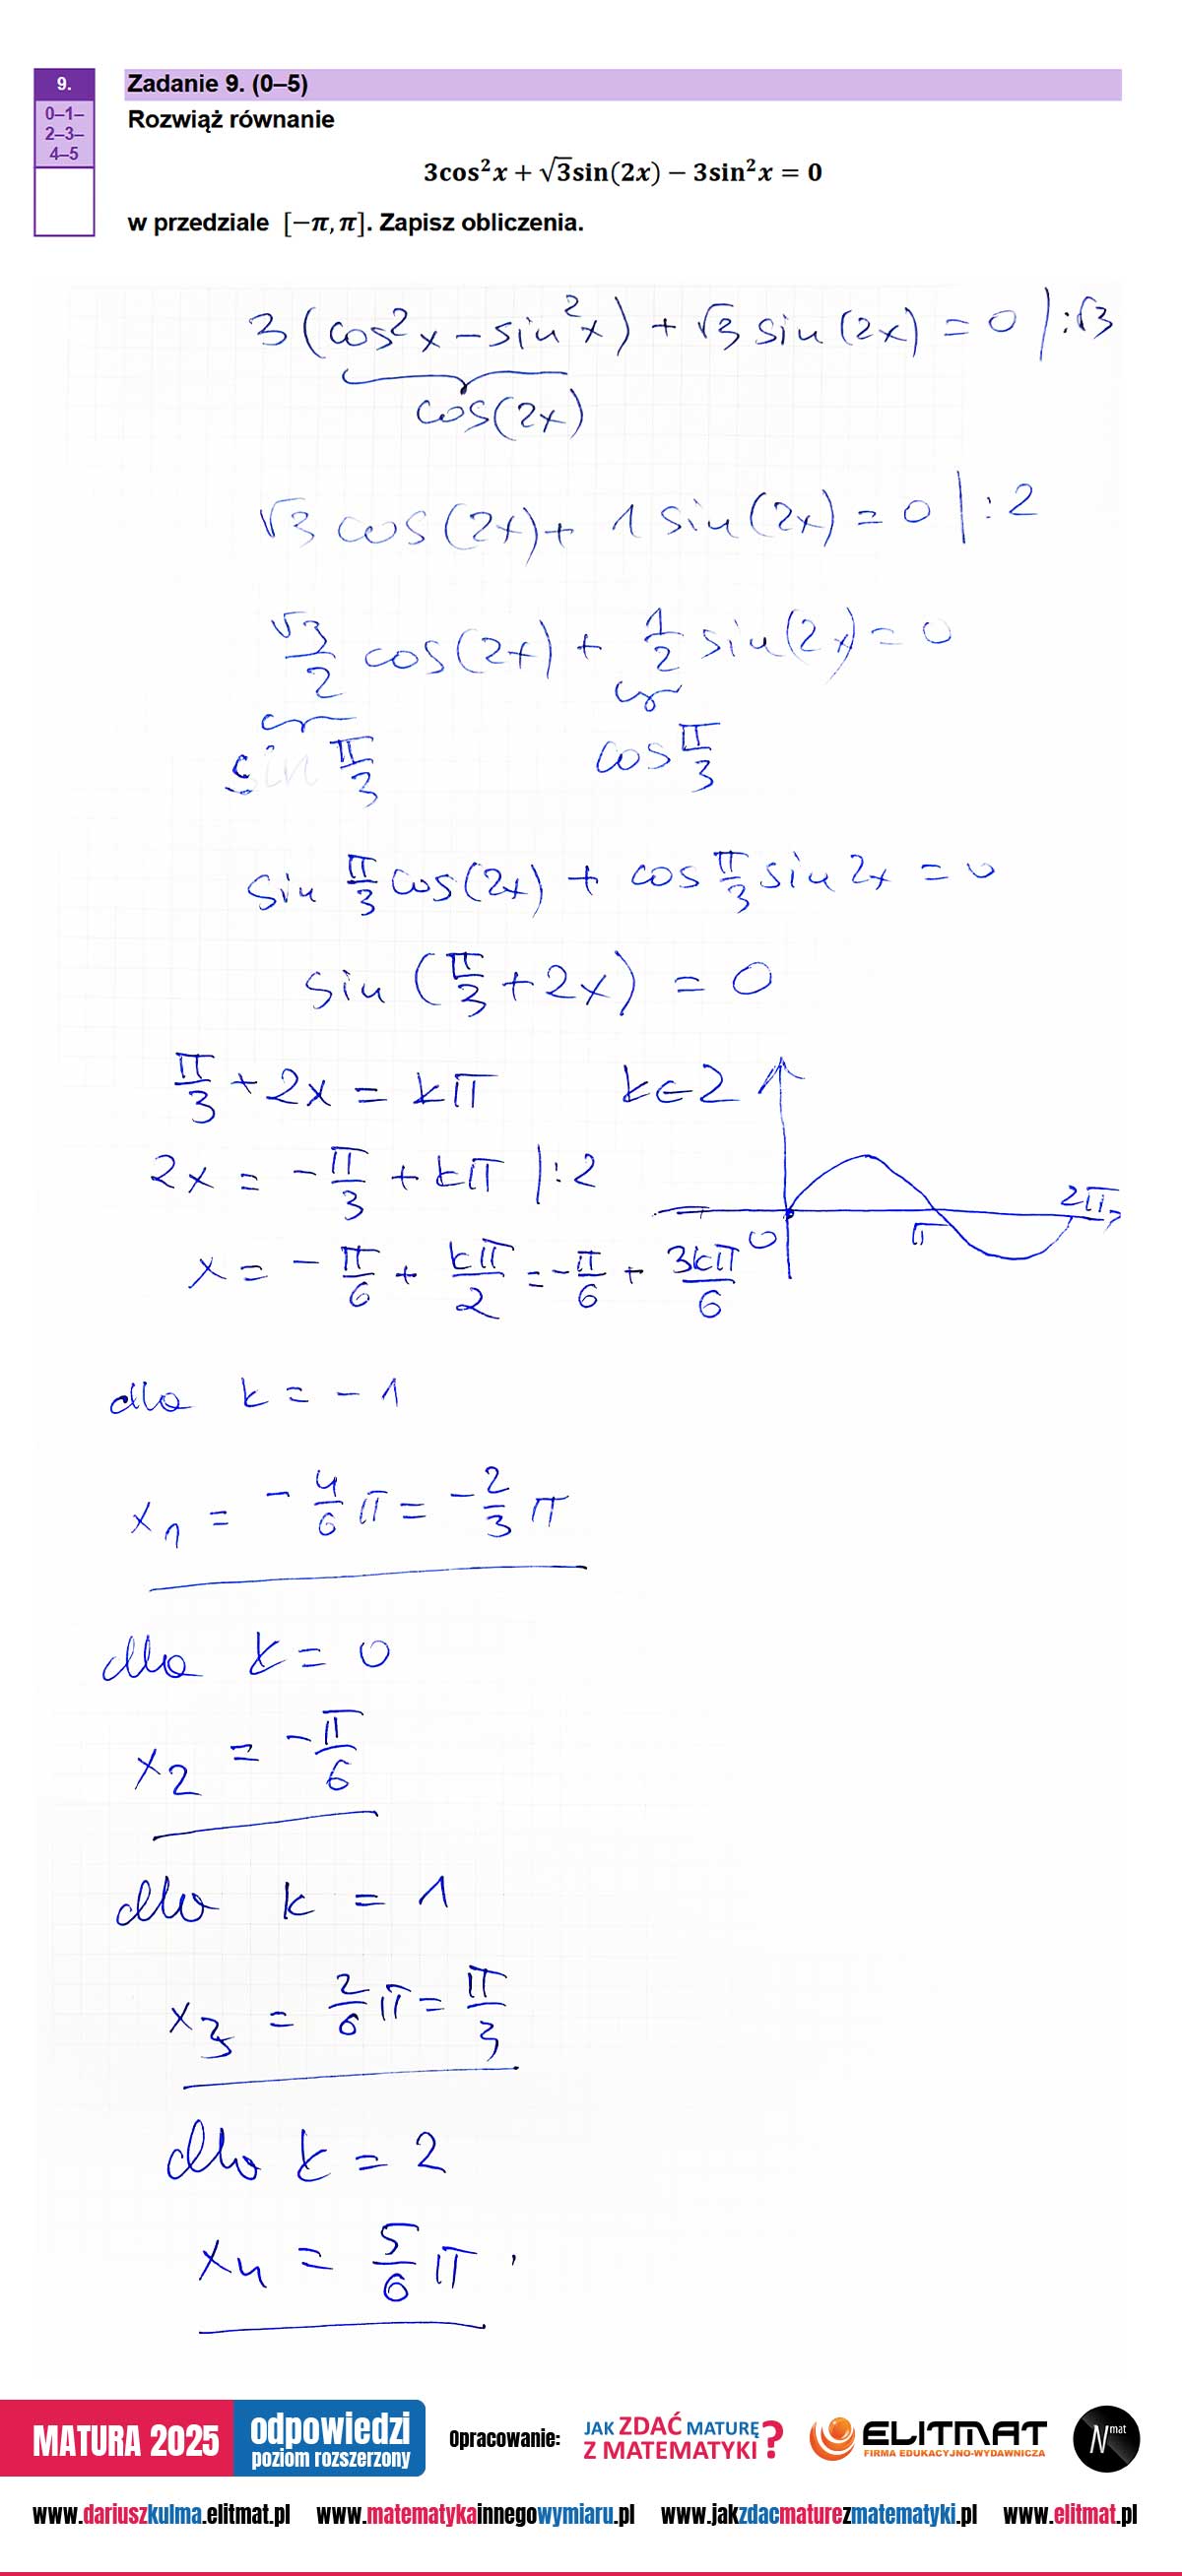 9.
0–1–
2–3–
4–5
Zadanie 9. (0–5)
Rozwiąż równanie
3cos²x + √3sin(2x) − 3sin²x = 0
w przedziale [−π, π]. Zapisz obliczenia.
3 (cos²x − sin²x) + √3 sin (2x) = 0 | :√3
cos(2x)
√3 cos(2x) + 1 sin(2x) = 0 | : 2
√3/2 cos(2x) + 1/2 sin(2x) = 0
sin π/3 cos π/3
sin π/3 cos(2x) + cos π/3 sin 2x = 0
sin (π/3 + 2x) = 0
π/3 + 2x = kπ k∈Z
2x = − π/3 + kπ | : 2
0 π 2π
x = − π/6 + kπ/2 = − π/6 + 3kπ/6
dla k = − 1
x₁ = − 4/6 π = − 2/3 π
dla k = 0
x₂ = − π/6
dla k = 1
x₃ = 2/6 π = π/3
dla k = 2
x₄ = 5/6 π .
MATURA 2025
odpowiedzi
poziom rozszerzony
Opracowanie:
JAK ZDAĆ MATURĘ
Z MATEMATYKI?
ELITMAT
FIRMA EDUKACYJNO-WYDAWNICZA
Nmat
www.dariuszkulma.elitmat.pl www.matematykainnegowymiaru.pl www.jakzdacmaturezmatematyki.pl www.elitmat.pl